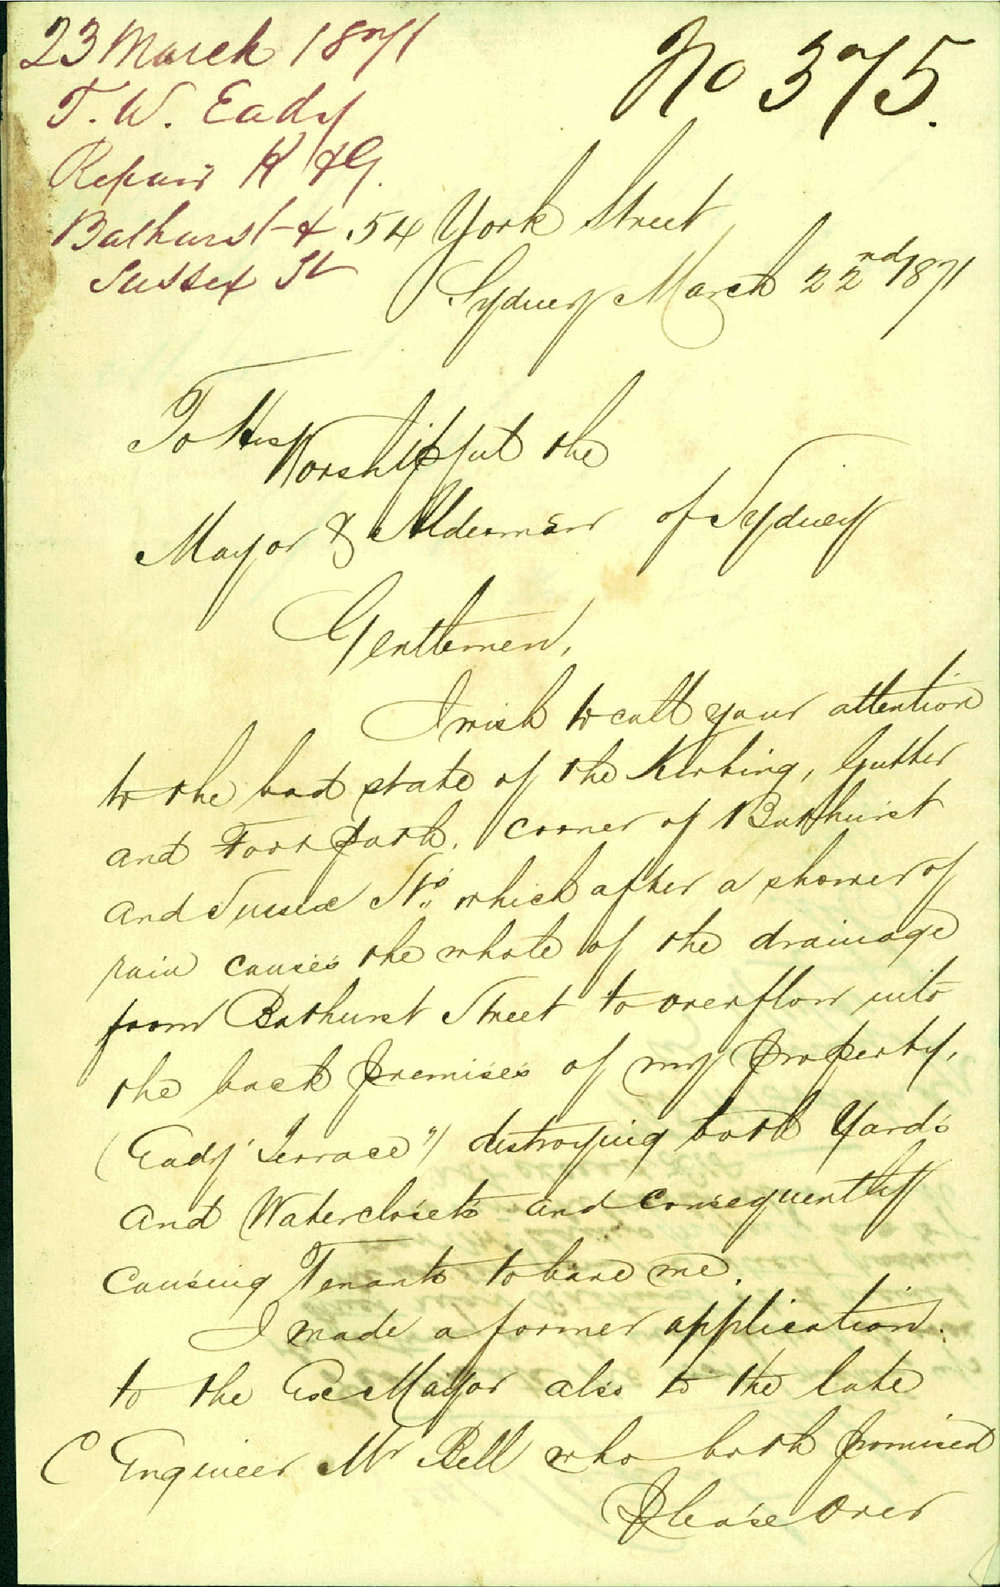 23 March 1871
T. W. Eady
Repair K & G.
Bathurst &
Sussex St
No 375.
54 York Street
Sydney March 22nd 1871
To His Worshipful the
Mayor & Aldermen of Sydney
Gentlemen,
I wish to call your attention
to the bad state of the Kerbing, Gutter
and Foot path, corner of Bathurst
and Sussex Sts. which after a shower of
rain causes the whole of the drainage
from Bathurst Street to overflow into
the back premises of my property,
(Eady Terrace") destroying both Yards
and Waterclosets and consequently
causing Tenants to leave me.
I made a former application
to the Ex Mayor also to the late
C Engineer Mr Bell who both promised
Please over